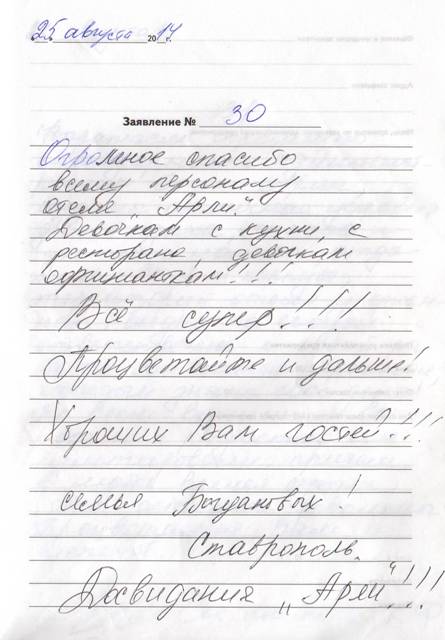 25 августа 2014 г.
Заявление № 30
Огромное спасибо
всему персоналу
отеля "Арли".
Девочкам с кухни, с
ресторана, девочкам
официанткам!!!
Всё супер!!!
Процветайте и дальше!
Хороших Вам гостей!!!
семья Богдановых!
Ставрополь.
Досвидания „Арли"!!!